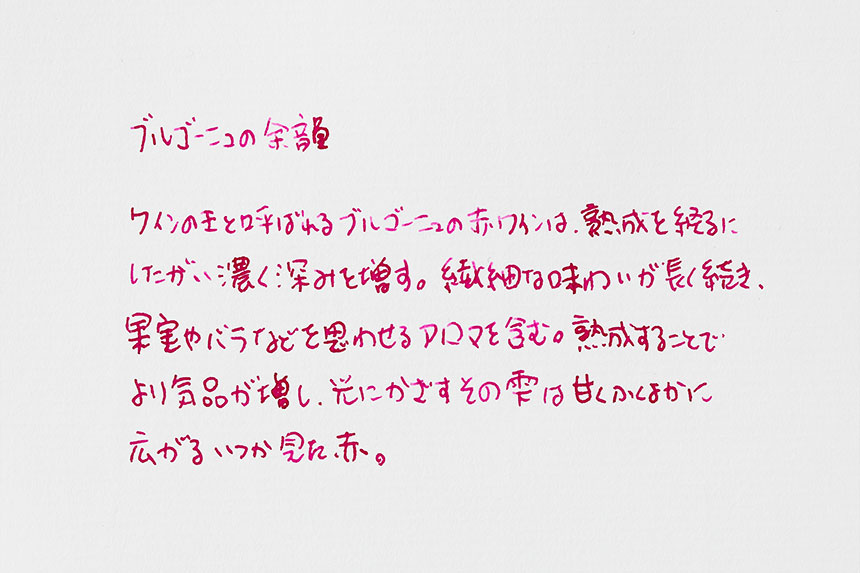 ブルゴーニュの余韻
ワインの王と呼ばれるブルゴーニュの赤ワインは、熟成を経るに
したがい濃く深みを増す。繊細な味わいが長く続き、
果実やバラなどを思わせるアロマを含む。熟成することで
より気品が増し、光にかざすその雫は甘くふくよかに
広がるいつか見た赤。